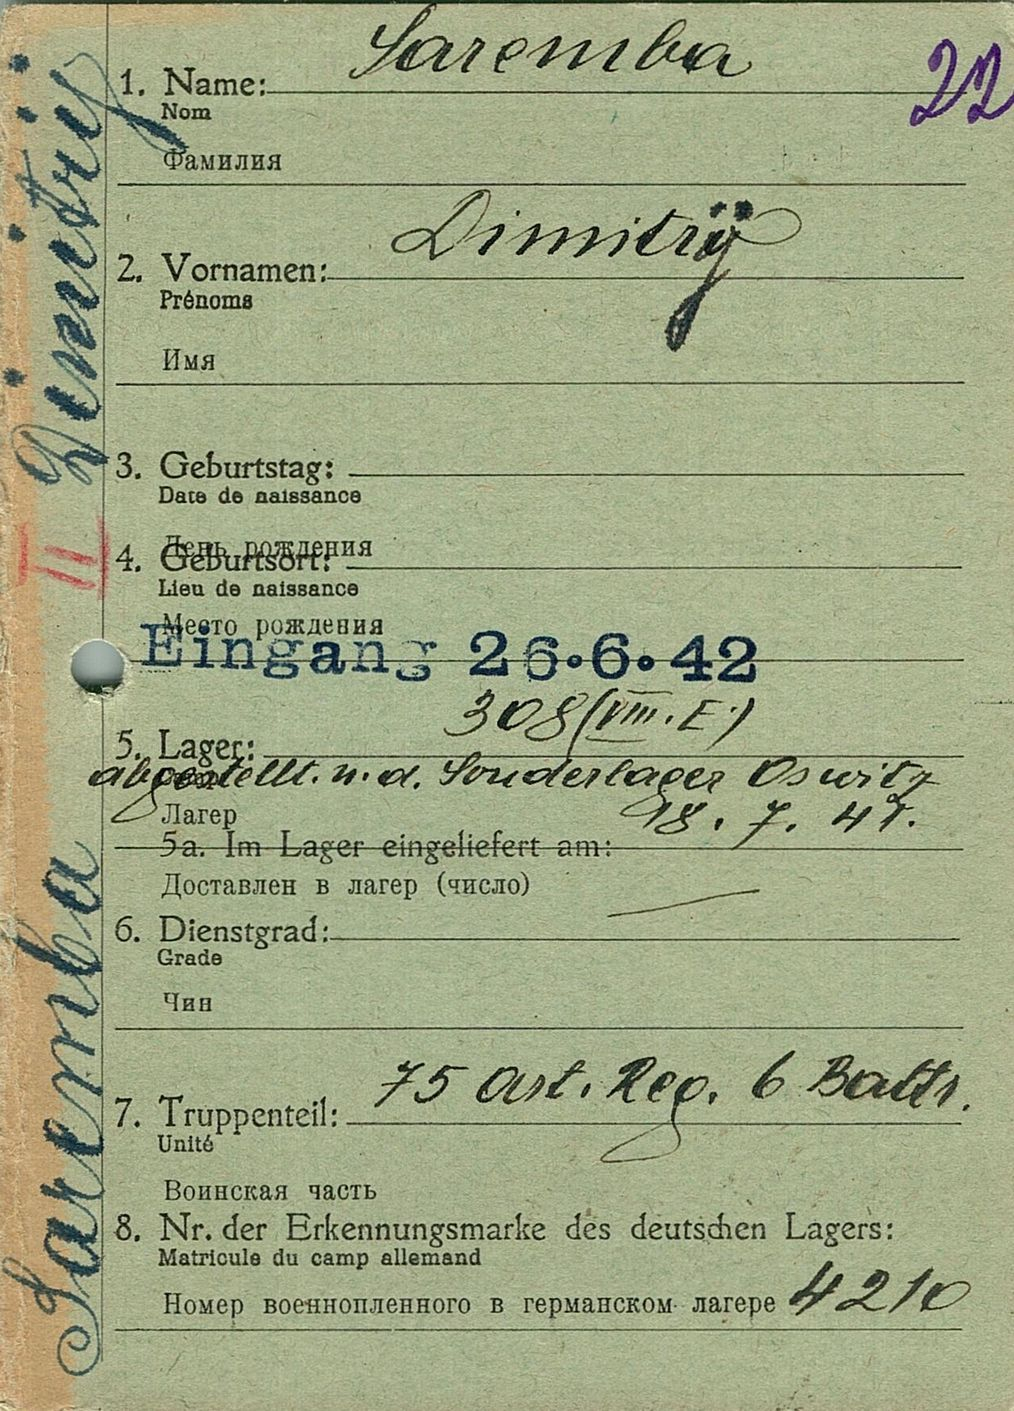 Saremba
22
1. Name:
Nom
Фамилия
Dimitrÿ
2. Vornamen:
Prénoms
Имя
3. Geburtstag:
Date de naissance
День рождения
4. Geburtsort:
Lieu de naissance
Место рождения
Eingang 26.6.42
308 (VIII. E.)
5. Lager:
abgestellt. n. d. Sonderlager Oswitz
Лагер
18. 7. 41.
5a. Im Lager eingeliefert am:
Доставлен в лагер (число)
6. Dienstgrad:
Grade
Чин
75 Art. Reg. 6 Battr.
7. Truppenteil:
Unité
Воинская часть
8. Nr. der Erkennungsmarke des deutschen Lagers:
Matricule du camp allemand
Номер военнопленного в германском лагере 4210
Saremba Dimitrij
II